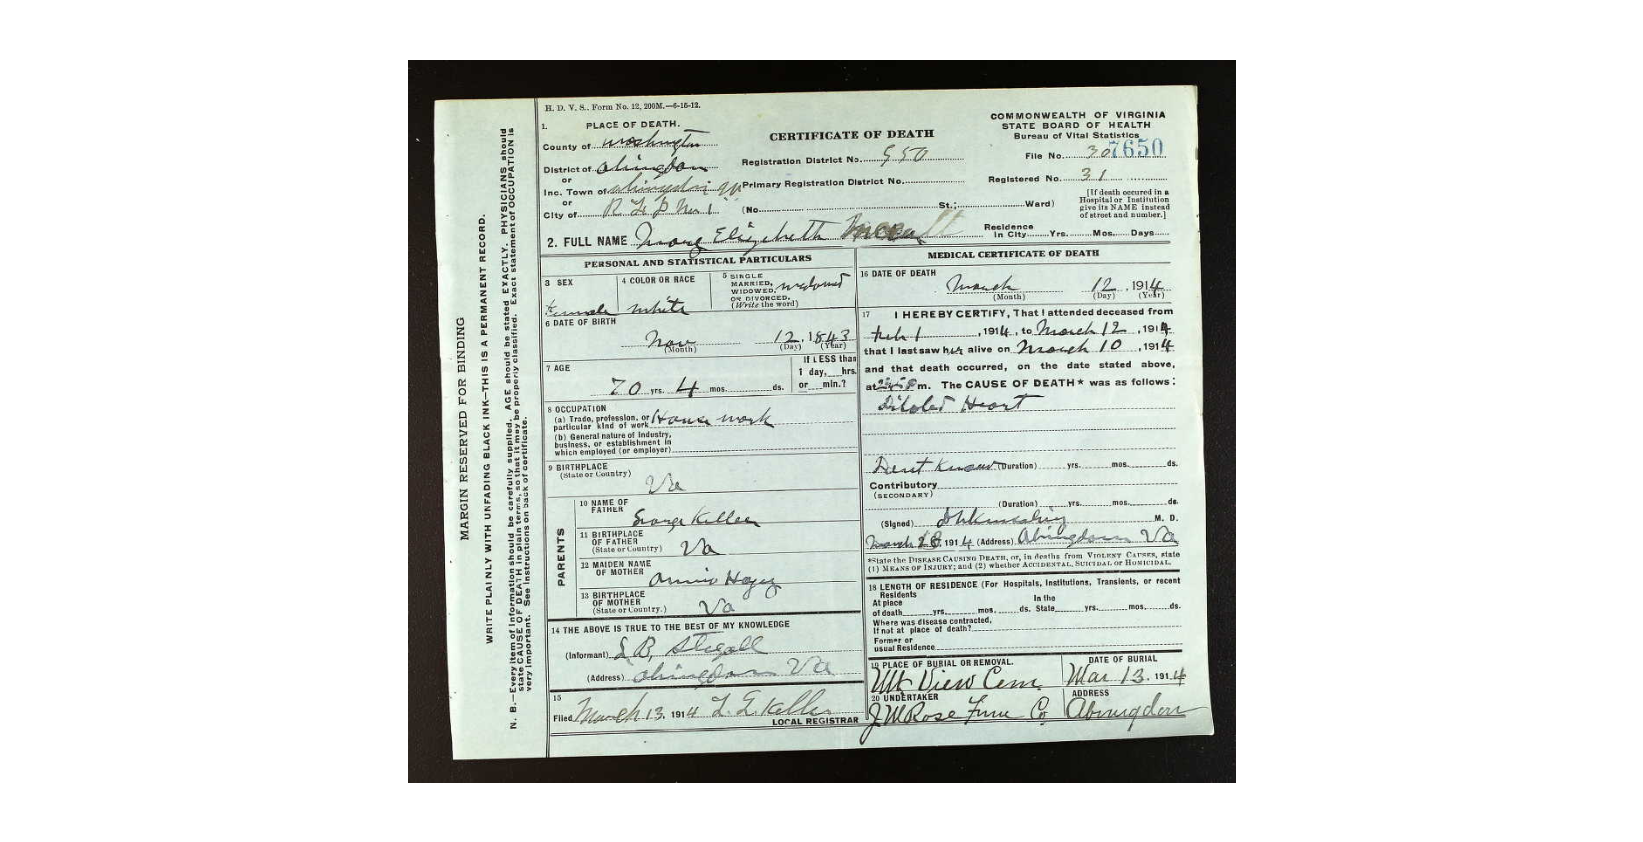 H. D. V. S., Form No. 12, 200M.—6-15-12.
1. PLACE OF DEATH.
County of Washington
District of Abingdon
or
Inc. Town of Abingdon
or
City of R F D No 1
CERTIFICATE OF DEATH
Registration District No. 950
Primary Registration District No.
(No. St.; Ward)
COMMONWEALTH OF VIRGINIA
STATE BOARD OF HEALTH
Bureau of Vital Statistics
File No. 30 7650
Registered No. 31
[If death occured in a
Hospital or Institution
give its NAME instead
of street and number.]
2. FULL NAME Mary Elizabeth
Residence
In City Yrs. Mos. Days
PERSONAL AND STATISTICAL PARTICULARS
3 SEX
Female
4 COLOR OR RACE
White
5 SINGLE
MARRIED,
WIDOWED,
OR DIVORCED.
(Write the word)
widowed
6 DATE OF BIRTH
Nov 12, 1843
(Month) (Day) (Year)
7 AGE
70 yrs. 4 mos. ds.
If LESS than
1 day, hrs.
or min.?
8 OCCUPATION
(a) Trade, profession, or
particular kind of work House work
(b) General nature of Industry,
business, or establishment in
which employed (or employer)
9 BIRTHPLACE
(State or Country)
Va
PARENTS
10 NAME OF
FATHER
George Keller
11 BIRTHPLACE
OF FATHER
(State or Country)
Va
12 MAIDEN NAME
OF MOTHER
Annie
13 BIRTHPLACE
OF MOTHER
(State or Country.)
Va
14 THE ABOVE IS TRUE TO THE BEST OF MY KNOWLEDGE
(Informant)
(Address) Abingdon Va
15
Filed March 13, 1914 Keller
LOCAL REGISTRAR
MEDICAL CERTIFICATE OF DEATH
16 DATE OF DEATH
March 12, 1914
(Month) (Day) (Year)
17 I HEREBY CERTIFY, That I attended deceased from
Feb 1, 1914, to March 12, 1914
that I last saw her alive on March 10, 1914
and that death occurred, on the date stated above,
at m. The CAUSE OF DEATH* was as follows:
Dilated Heart
Dont Know (Duration) yrs. mos. ds.
Contributory
(SECONDARY)
(Duration) yrs. mos. ds.
(Signed) M. D.
March 1914 (Address) Abingdon Va
*State the DISEASE CAUSING DEATH, or, in deaths from VIOLENT CAUSES, state
(1) MEANS OF INJURY; and (2) whether ACCIDENTAL, SUICIDAL or HOMICIDAL.
18 LENGTH OF RESIDENCE (For Hospitals, Institutions, Transients, or recent
Residents
At place In the
of death yrs. mos. ds. State yrs. mos. ds.
Where was disease contracted,
If not at place of death?
Former or
usual Residence
19 PLACE OF BURIAL OR REMOVAL.
Mt View Cem.
DATE OF BURIAL
Mar 13, 1914
20 UNDERTAKER
J W Rose Furn Co
ADDRESS
Abingdon
MARGIN RESERVED FOR BINDING
WRITE PLAINLY WITH UNFADING BLACK INK—THIS IS A PERMANENT RECORD.
N. B.—Every item of information should be carefully supplied. AGE should be stated EXACTLY. PHYSICIANS should
state CAUSE OF DEATH in plain terms, so that it may be properly classified. Exact statement of OCCUPATION is
very important. See instructions on back of certificate.